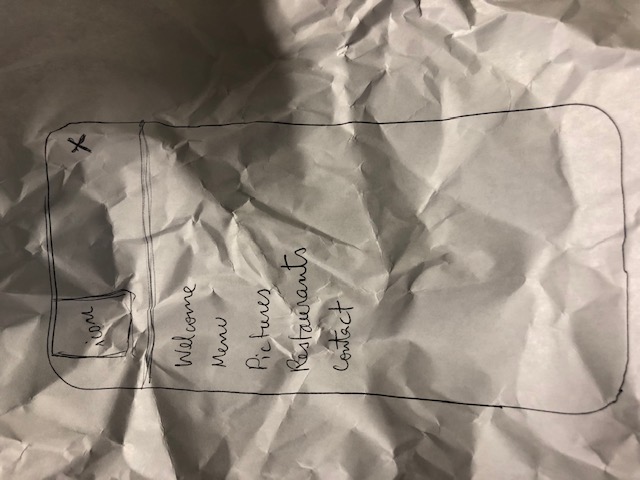 icon
X
Welcome
Menu
Pictures
Restaurants
Contact